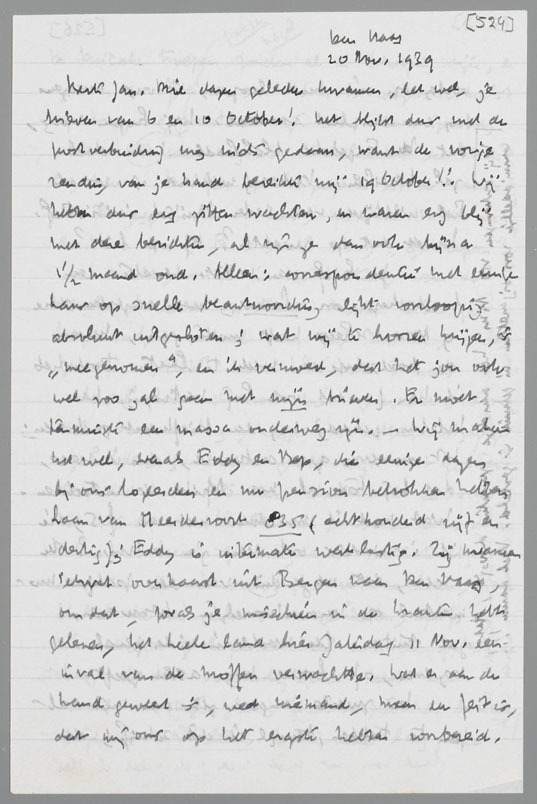 [524]
Den Haag
20 Nov. 1939
Beste Jan. Drie dagen geleden kwamen, let wel, je
brieven van 6 en 10 October! Het blijkt dus met de
postverbinding nog niets gedaan, want de vorige
zending van je hand bereikte mij 19 October!! Wij
hebben dus erg zitten wachten, en waren erg blij
met deze berichten, al zijn ze dan ook bijna
1 1/2 maand oud. Alleen: correspondentie met eenige
kans op snelle beantwoording lijkt voorloopig
absoluut uitgesloten; wat wij te hooren krijgen, is
„meegenomen", en ik vermoed, dat het jou ook
wel zoo zal gaan met mijn brieven. Er moet
tenminste een massa onderweg zijn. – Wij maken
het wel, evenals Eddy en Bep, die eenige dagen
bij ons logeerden en nu pension betrokken hebben
Laan van Meerdervoort 835 (achthonderd vijf en
dertig); Eddy is uitermate werklustig. Zij kwamen
ietwat overhaast uit Bergen naar Den Haag,
omdat, zooals je misschien in de kranten hebt
gelezen, het heele land hier Zaterdag 11 Nov. een
inval van de moffen verwachtte. Wat er aan de
hand geweest is, weet niemand, maar een feit is,
dat wij ons op het ergste hebben voorbereid.